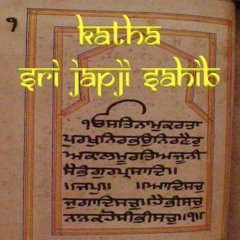 ੧
KATHA
SRI JAPJI SAHIB
ੴਸਤਿਨਾਮੁਕਰਤਾ
ਪੁਰਖੁਨਿਰਭਉਨਿਰਵੈਰੁ
ਅਕਾਲਮੂਰਤਿਅਜੂਨੀ
ਸੈਭੰਗੁਰਪ੍ਰਸਾਦਿ॥
॥ਜਪੁ॥ਆਦਿਸਚੁ
ਜੁਗਾਦਿਸਚੁ॥ਹੈਭੀਸਚੁ
ਨਾਨਕਹੋਸੀਭੀਸਚੁ॥੧॥